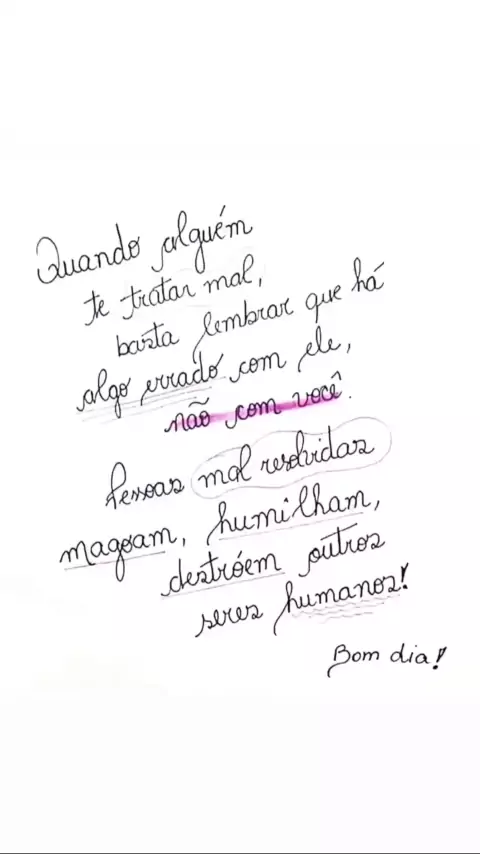 Quando alguém
te tratar mal,
basta lembrar que há
algo errado com ele,
não com você.
Pessoas mal resolvidas
magoam, humilham,
destróem outros
seres humanos!
Bom dia!